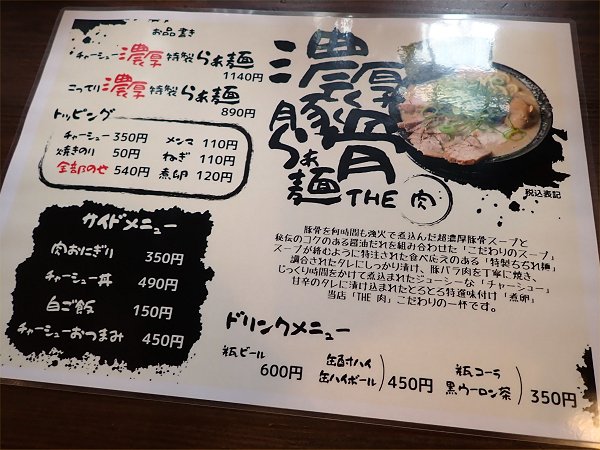 お品書き
チャーシュー濃厚特製らぁ麺
1140円
こってり濃厚特製らぁ麺
890円
トッピング
チャーシュー 350円 メンマ 110円
焼きのり 50円 ねぎ 110円
全部のせ 540円 煮卵 120円
サイドメニュー
肉おにぎり 350円
チャーシュー丼 490円
白ご飯 150円
チャーシューおつまみ 450円
濃厚
豚骨
らぁ麺
THE 肉
税込表記
豚骨を何時間も強火で煮込んだ超濃厚豚骨スープと
秘伝のコクのある醤油だれを組み合わせた「こだわりのスープ」
スープが絡むように特注された食べ応えのある「特製ちぢれ麺」
調合されたタレにしっかり漬け、豚バラ肉を丁寧に焼き、
じっくり時間をかけて煮込まれたジューシーな「チャーシュー」
甘辛のタレに漬け込まれたとろとろ特選味付け「煮卵」
当店「THE 肉」こだわりの一杯です。
ドリンクメニュー
瓶ビール
600円
缶酎ハイ
缶ハイボール
450円
瓶コーラ
黒ウーロン茶
350円